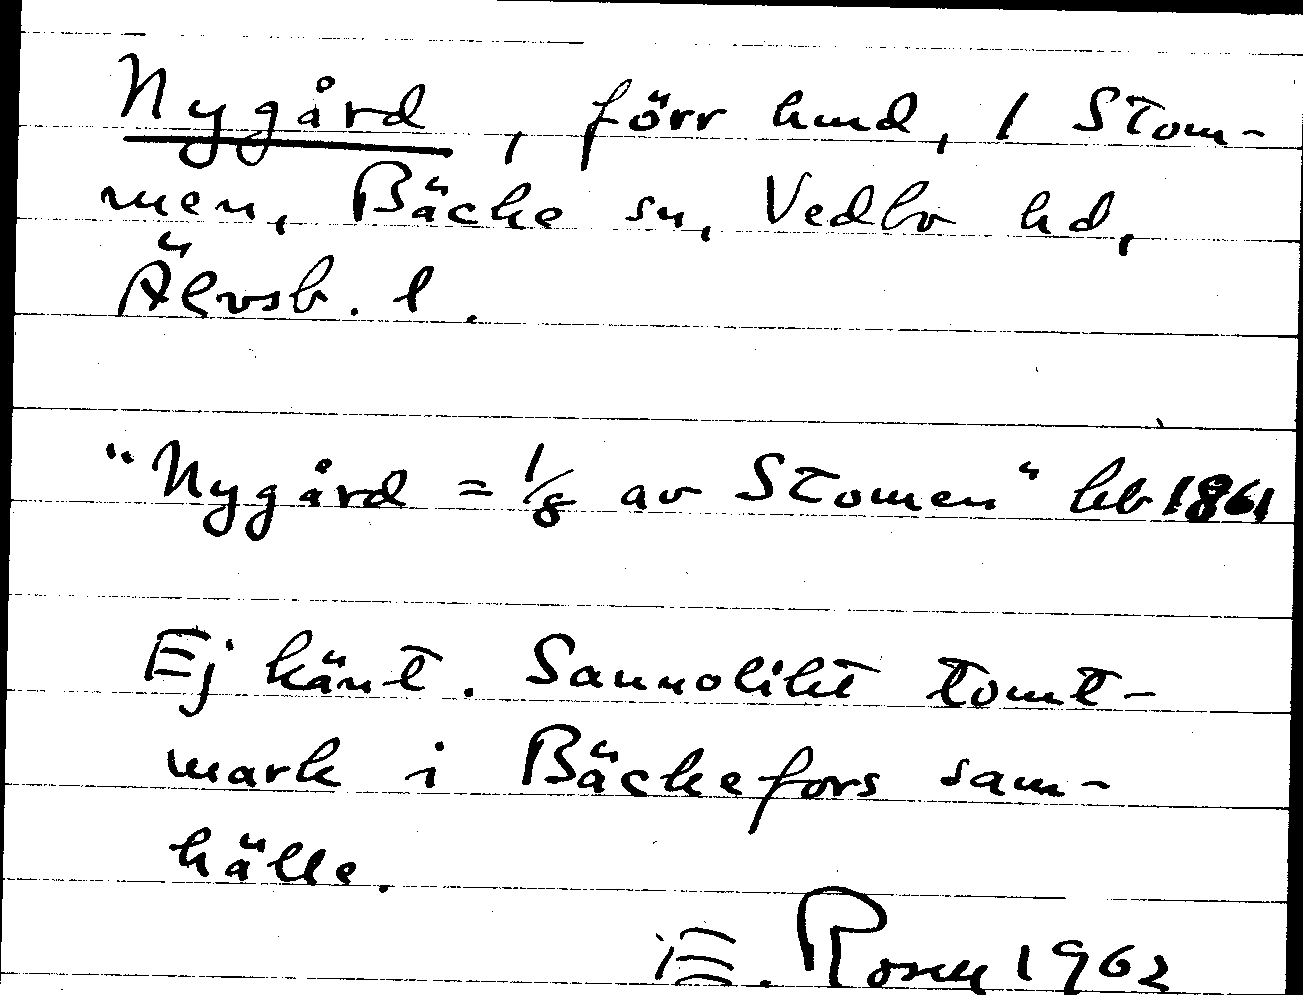 Nygård, förr hmd, 1 Stom-
men, Bäcke sn, Vedbo hd,
Älvsb. l.
"Nygård = 1/8 av Stomen" hb 1861
Ej känt. Sannolikt tomt-
mark i Bäckefors sam-
hälle.
E. Rosen 1962